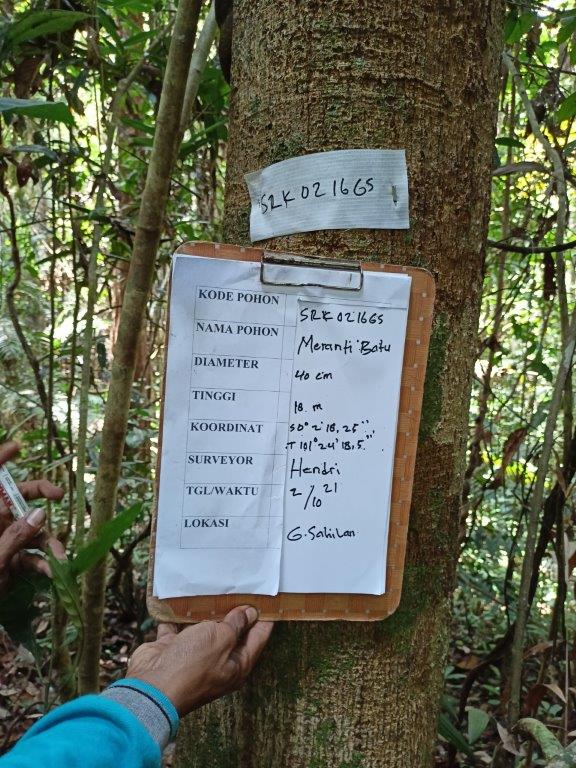 SRK 02 16GS
KODE POHON SRK 0216GS
NAMA POHON Meranti Batu
DIAMETER 40 cm
TINGGI 18. m
KOORDINAT S0° 2' 18, 25''
T 101° 24' 18, 5''
SURVEYOR Hendri
TGL/WAKTU 2/10 21
LOKASI G. Sahilan